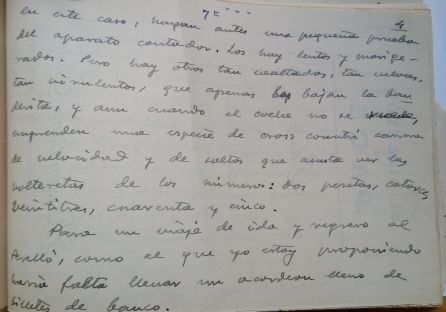 4
en este caso, hagan antes una pequeña prueba
del aparato contador. Los hay lentos y morige-
rados. Pero hay otros tan exaltados, tan veloces,
tan virulentos, que apenas bajan la ban
derita, y aun cuando el coche no se
emprenden una especie de cross countri carrera
de velocidad y de saltos que asusta ver las
volteretas de los números: dos pesetas, catorce,
veintitres, cuarenta y cinco.
Para un viaje de ida y regreso al
como el que yo estoy proponiendo
haría falta llenar un acordeon lleno de
billetes de banco.